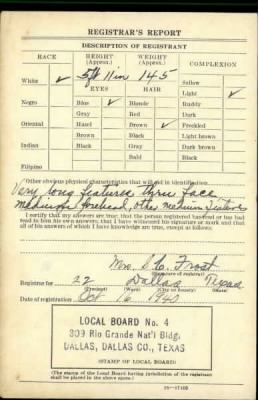 REGISTRAR'S REPORT
DESCRIPTION OF REGISTRANT
RACE HEIGHT (Approx.) WEIGHT (Approx.) COMPLEXION
White ✓ 5 ft 11 in 145 Sallow
EYES HAIR Light ✓
Negro Blue ✓ Blonde Ruddy
Gray Red Dark
Oriental Hazel Brown ✓ Freckled
Brown Black Light brown
Indian Black Gray Dark brown
Bald Black
Filipino
Other obvious physical characteristics that will aid in identification
Very long features, thru face
medium forehead, other medium features
I certify that my answers are true; that the person registered has read or has had
read to him his own answers; that I have witnessed his signature or mark and that
all of his answers of which I have knowledge are true, except as follows:
Mrs. Frost
Registrar for 22 Dallas Texas
(Precinct) (Ward) (City or county) (State)
Date of registration Oct 16 1940
LOCAL BOARD No. 4
309 Rio Grande Nat'l Bldg.
DALLAS, DALLAS CO., TEXAS
(STAMP OF LOCAL BOARD)
(The stamp of the Local Board having jurisdiction of the registrant
shall be placed in the above space.)